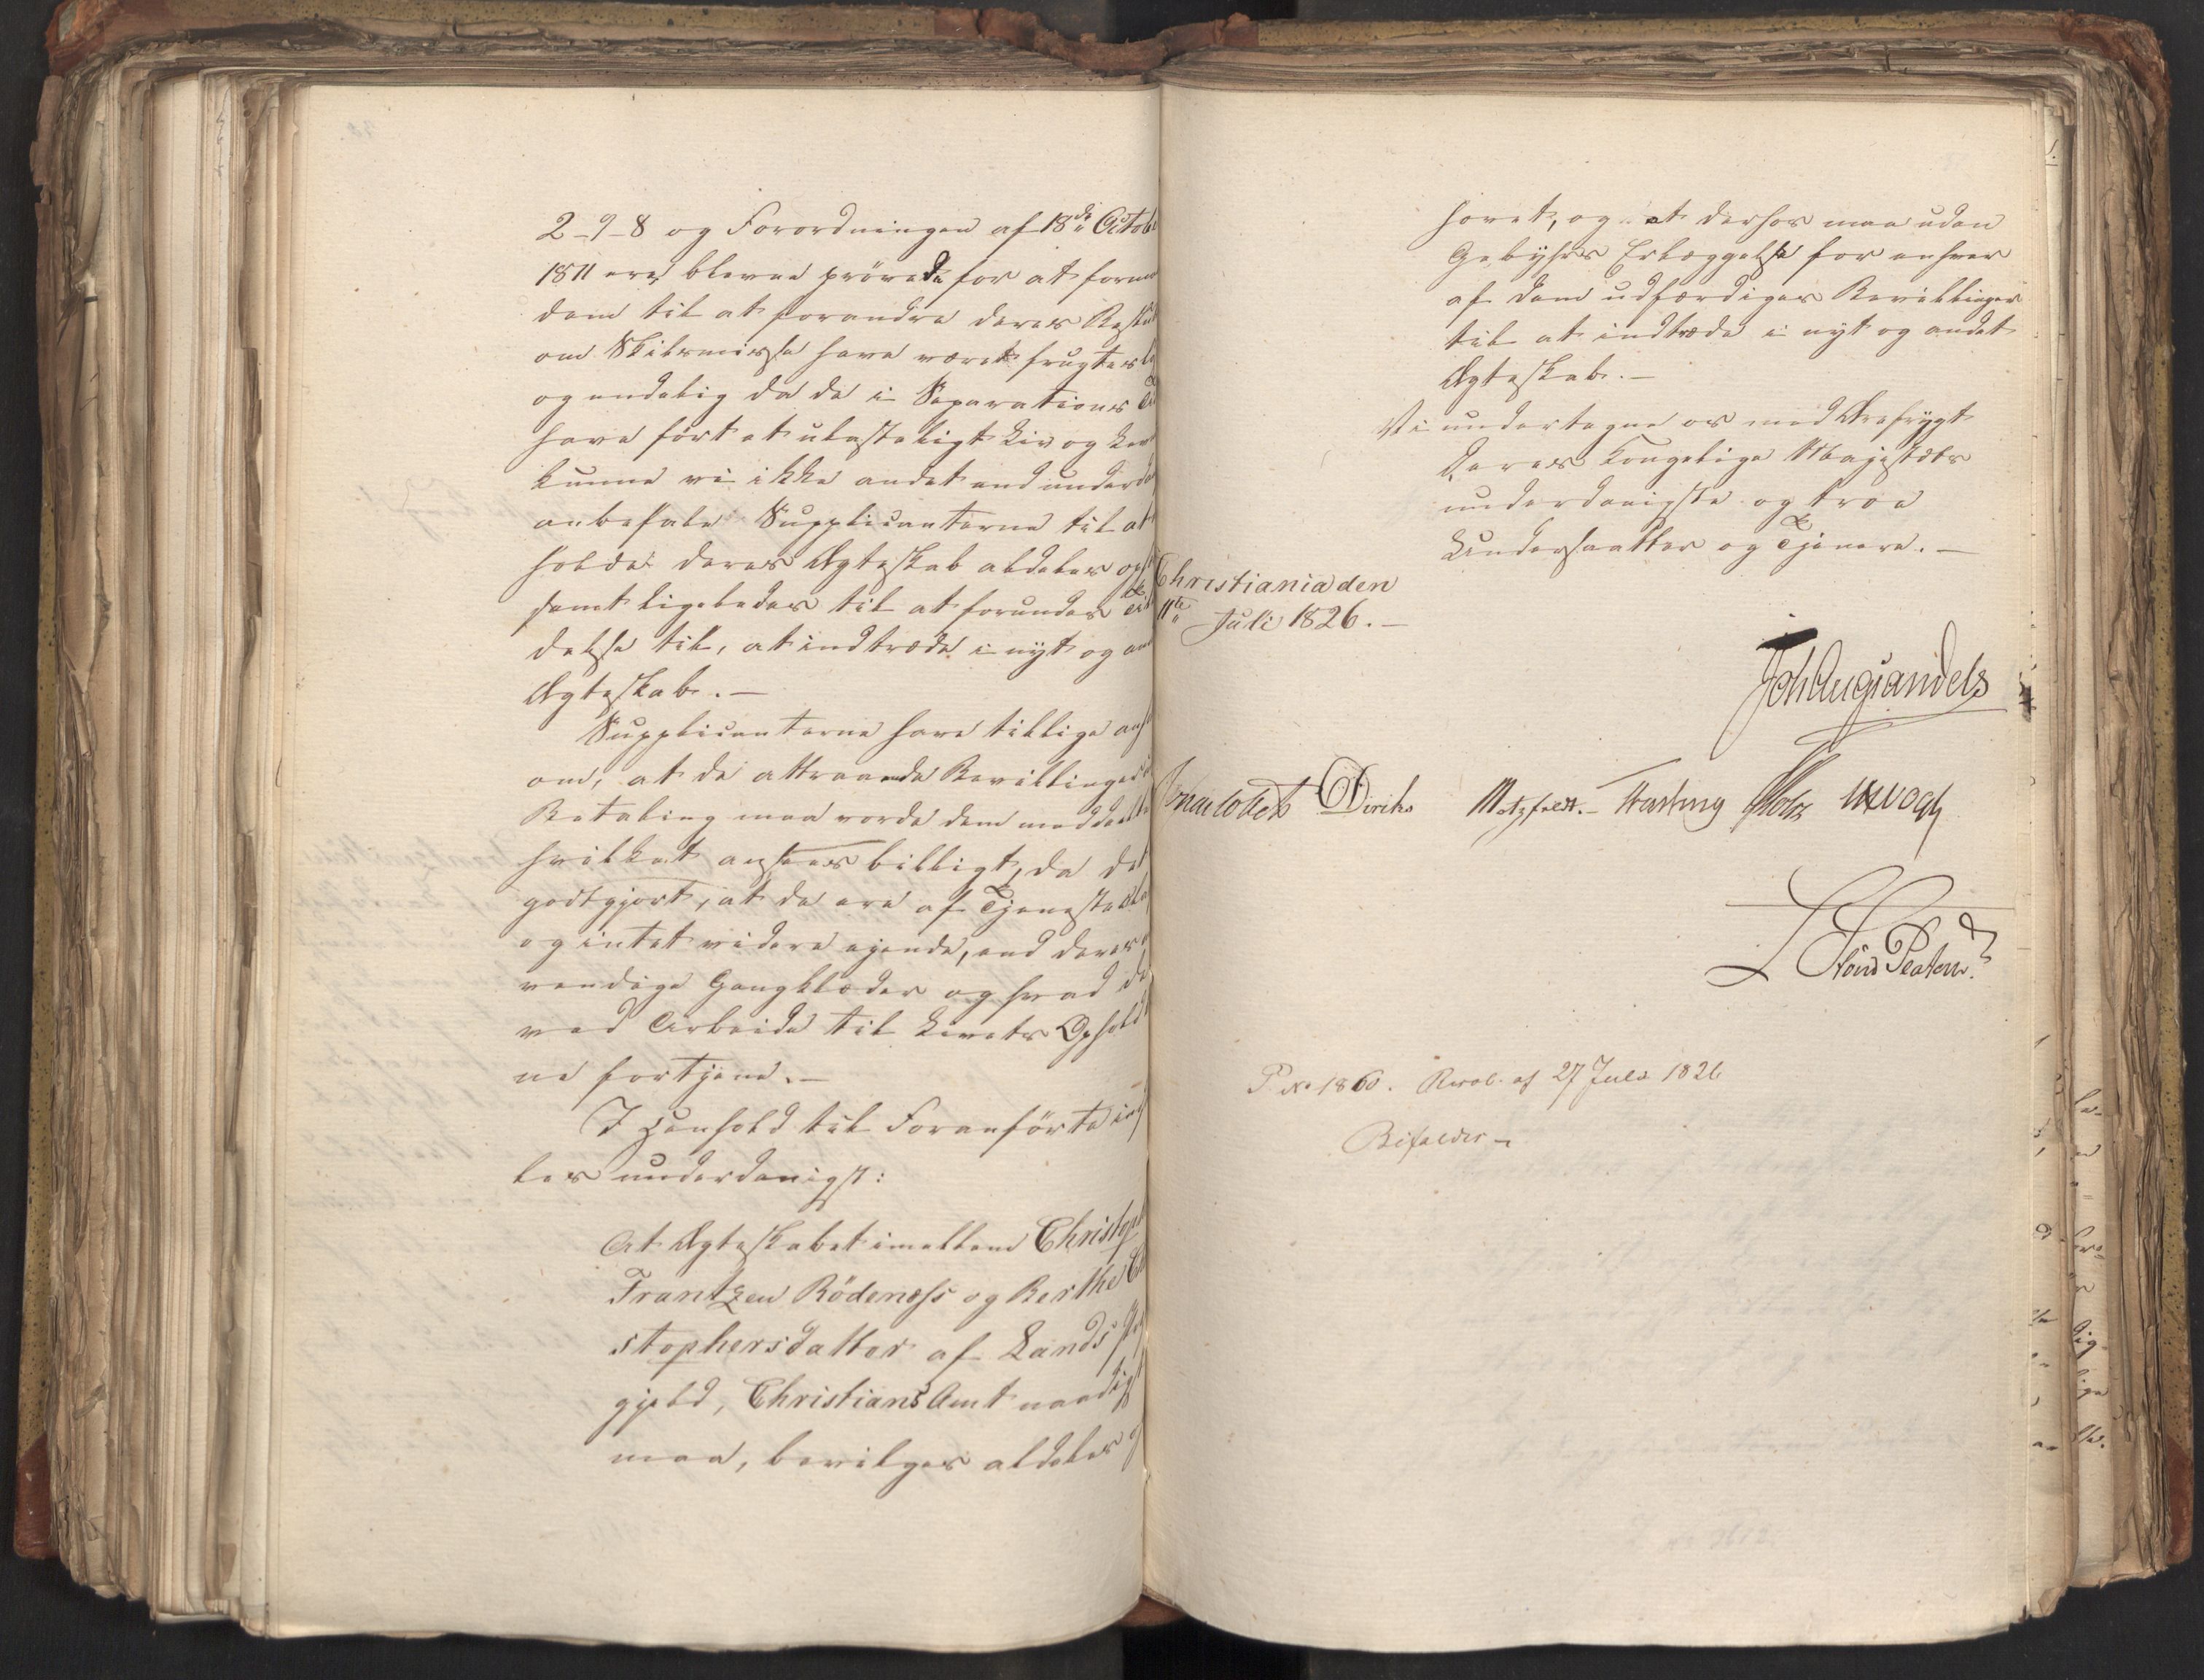 2-9-8 og Forordningen af 18de Octob
1811 ere blevne prövede for at forma
dem til at forandre deres Beslut
om Skilsmisse have været frugteslø
og endelig da de i Separations Ti
have fört et ulasteligt Liv og Lev
kunne vi ikke andet end underda
anbefale Supplicanterne til at
holde deres Ægteskab aldeles oph
samt ligeledes til at forundes Til
delse til, at indtræde i nyt og an
Ægteskab.-
Supplicanterne have tillige ans
om, at de attraaede Bevillinger
Betaling maa vorde dem meddeelte
hvilket ansees billigt, da det
godtgjort, at de ere af Tjenestekla
og intet videre ejende, end deres
vendige Gangklæder og hvad de
ved Arbeide til Livets Ophold
ne fortjene.-
I Henhold til Foranförte ind
les underdanigst:
At Ægteskabet imellem Christop
Frantzen Rödenæss og Berthe Ch
stophersdatter af Lands Pr
gjeld, Christians Amt naadigst
maa, bevilges aldeles
hævet, og at derhos maa uden
Gebyhrs Erlæggelse for enhver
af dem udfærdiges Bevillinger
til at indtræde i nyt og andet
Ægteskab.-
Vi undertegne os med Ærefrygt
Deres Kongelige Majestæts
underdanigste og troe
Undersaatter og Tjenere.-
Christiania den
11te Juli 1826.-
Joh Aug Sandels
Jonas Collett Diriks Motzfeldt.- Fasting Holst JHVogt
L Stoud Platou.
P. No 1860. Resol. af 27 Juli 1826
Bifaldes -